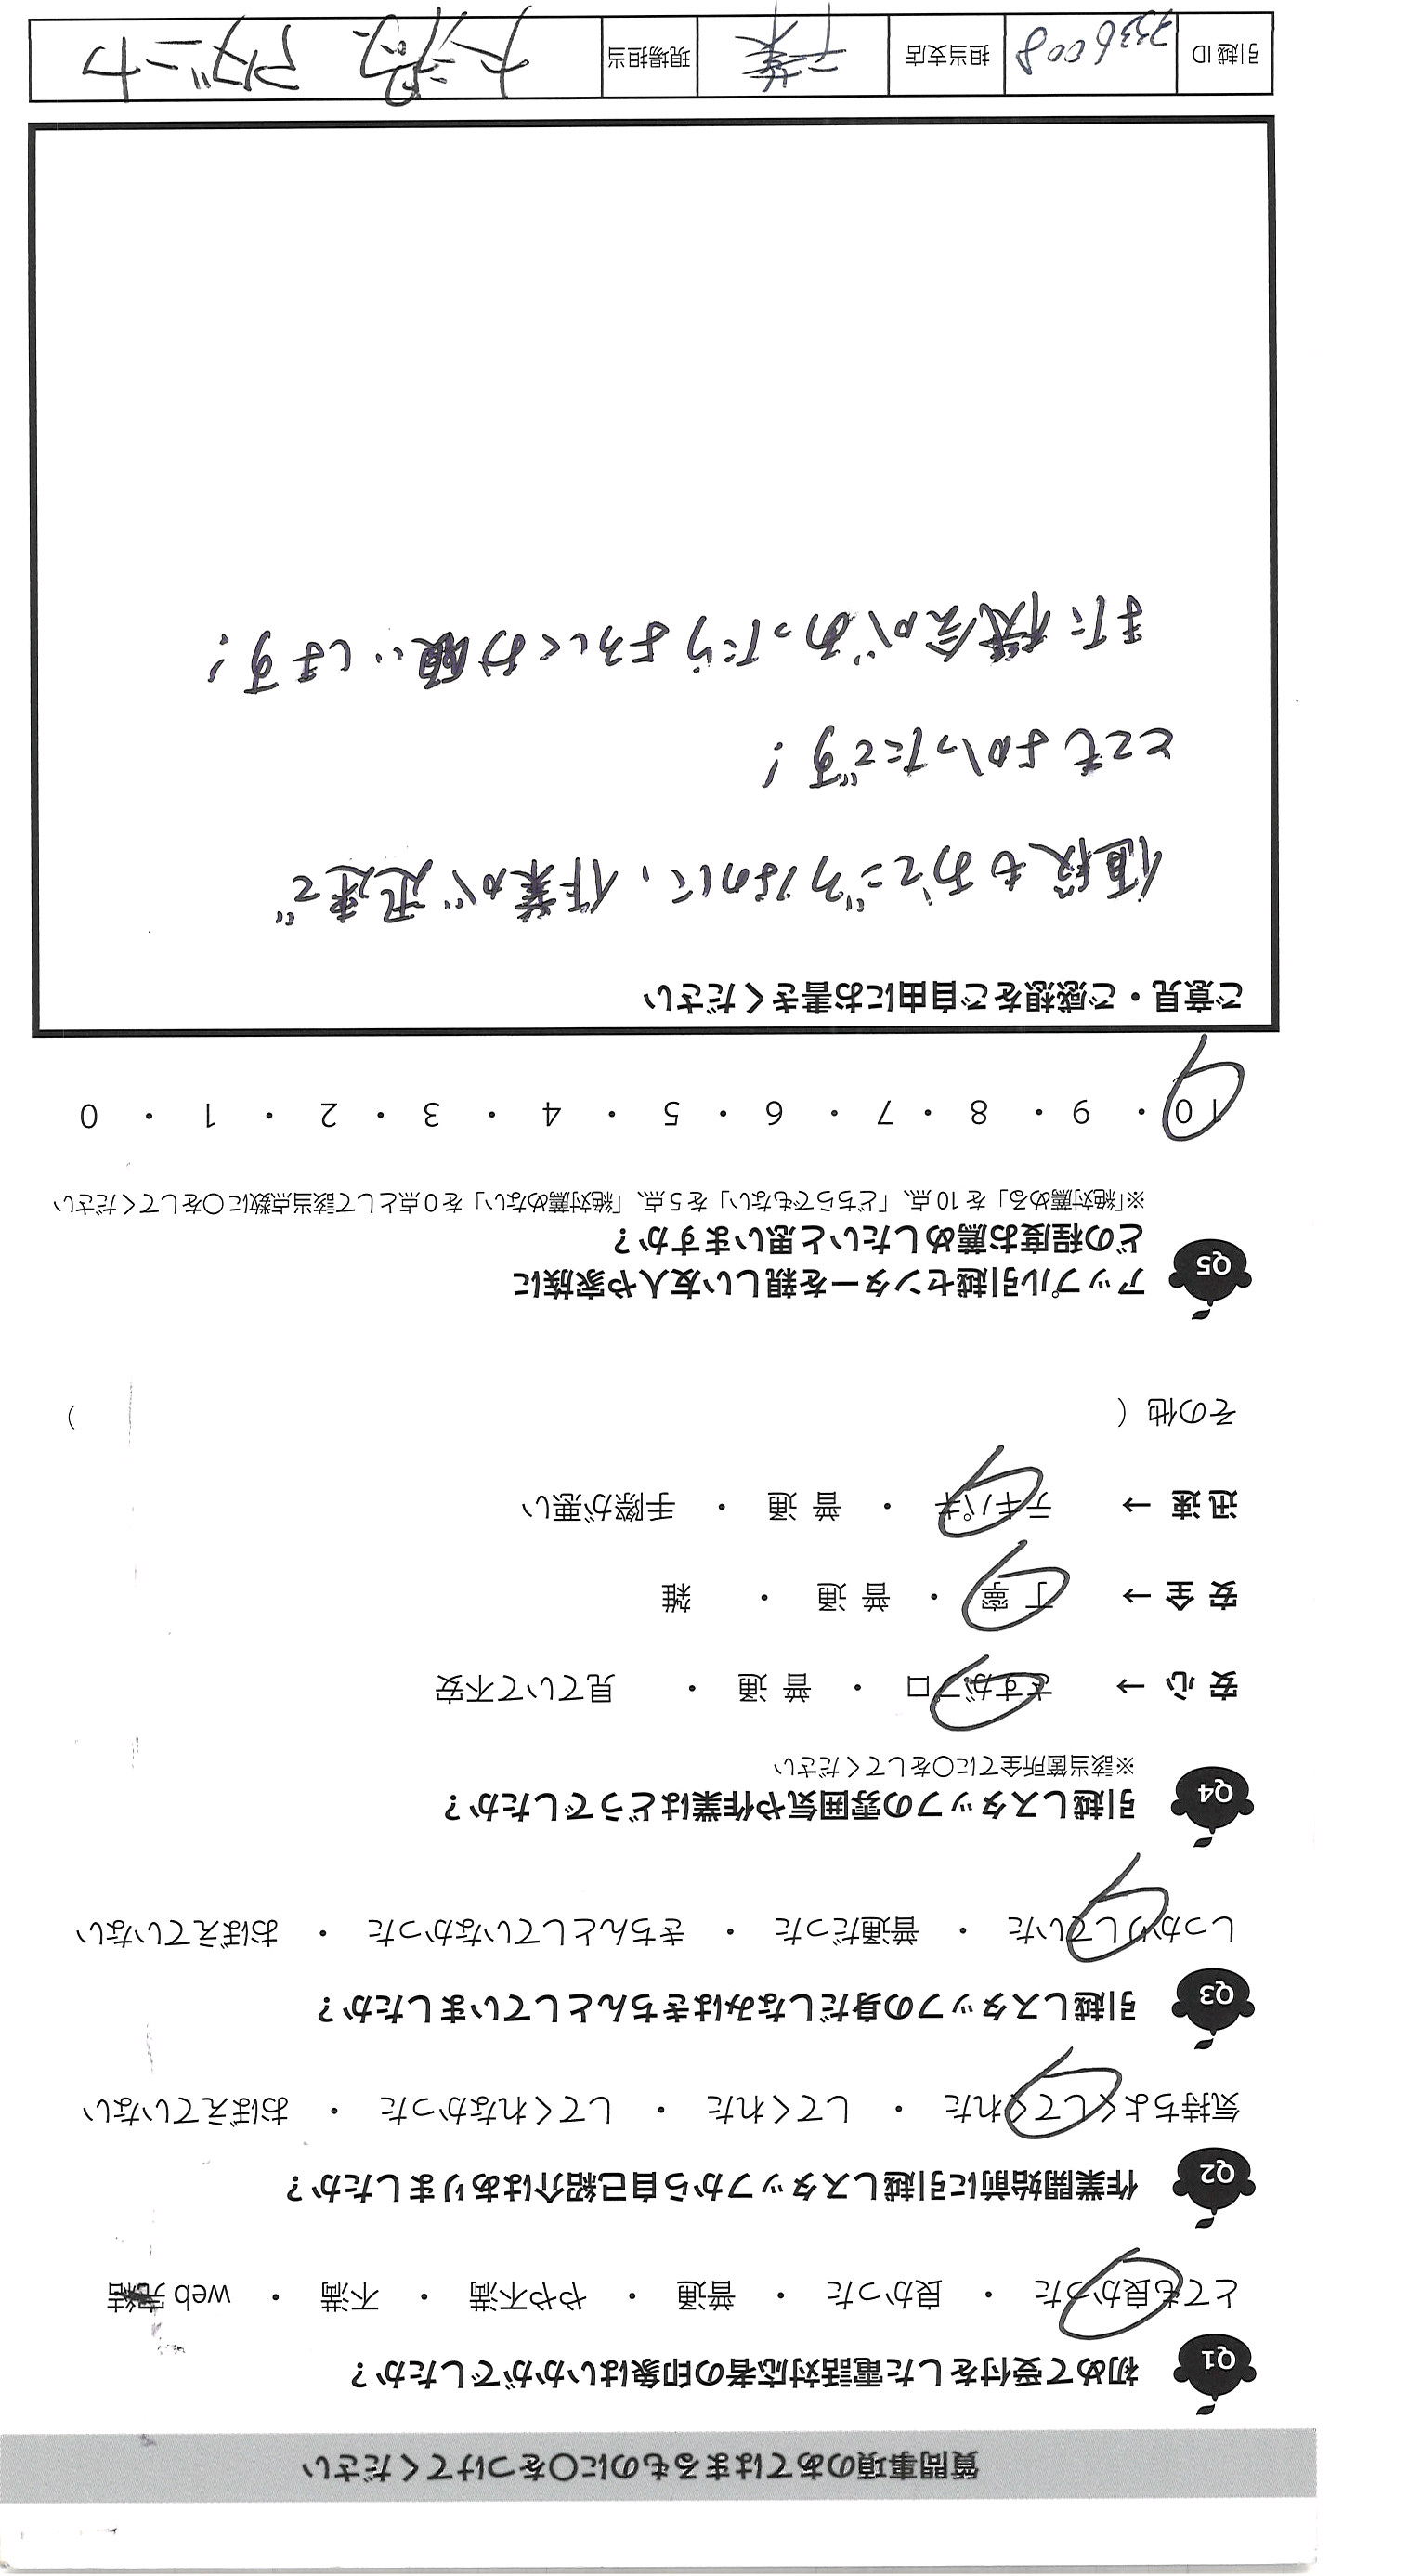 質問事項のあてはまるものに○をつけてください
Q1 初めて受付をした電話対応者の印象はいかがでしたか？
とても良かった ・ 良かった ・ 普通 ・ やや不満 ・ 不満 ・ web 完結
Q2 作業開始前に引越しスタッフから自己紹介はありましたか？
気持ちよくしてくれた ・ してくれた ・ してくれなかった ・ おぼえていない
Q3 引越しスタッフの身だしなみはきちんとしていましたか？
しっかりしていた ・ 普通だった ・ きちんとしていなかった ・ おぼえていない
Q4 引越しスタッフの雰囲気や作業はどうでしたか？
※該当箇所全てに○をしてください
安 心 → さすがプロ ・ 普 通 ・ 見ていて不安
安 全 → 丁 寧 ・ 普 通 ・ 雑
迅 速 → テキパキ ・ 普 通 ・ 手際が悪い
その他（ ）
Q5 アップル引越センターを親しい友人や家族に
どの程度お薦めしたいと思いますか？
※「絶対薦める」を 10 点、「どちらでもない」を 5 点、「絶対薦めない」を 0 点として該当点数に○をしてください
10 ・ 9 ・ 8 ・ 7 ・ 6 ・ 5 ・ 4 ・ 3 ・ 2 ・ 1 ・ 0
ご意見・ご感想をご自由にお書きください
値段もおてごろなのに、作業が迅速で
とてもよかったです！
また機会があったらよろしくお願いします！
引越 ID 担当支店 千葉 現場担当